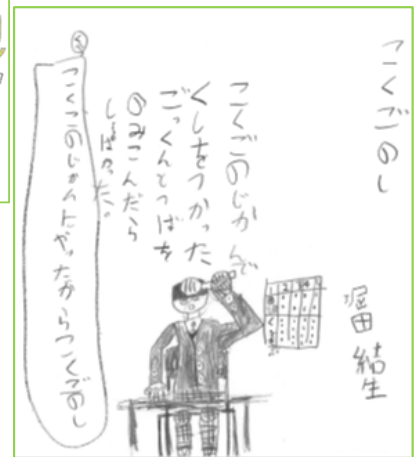 こくごのし
堀田 結生
こくごのじかんで
くしをつかった
ごっくんとつばを
のみこんだら
こくごのじかんにやったからこくごのし